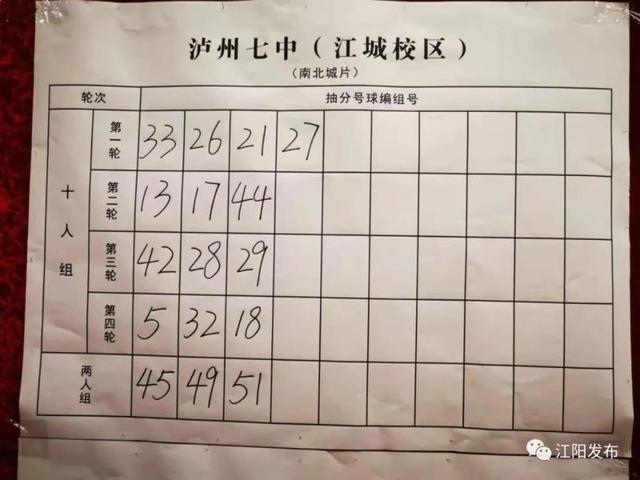 泸州七中（江城校区）
（南北城片）
轮次 抽分号球编组号
十人组
第一轮 33 26 21 27
第二轮 13 17 44
第三轮 42 28 29
第四轮 5 32 18
两人组 45 49 51
江阳发布